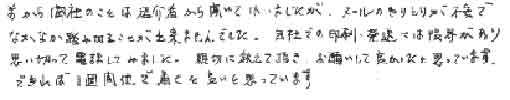 前から御社のことは紹介者から聞いてはいましたが、メールのやりとりが不安で
なかなか踏み切ることが出来ませんでした。自社での印刷・発送では限界があり
思い切って電話してみました。親切に教えて頂き、お願いして良かったと思っています。
できれば1週間位で届くと良いと思っています